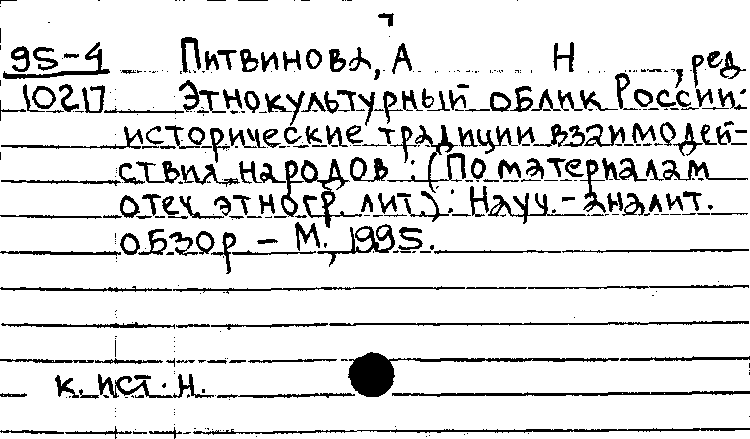 95-4 Литвинова, А Н , ред
10217 Этнокультурный облик России:
исторические традиции взаимодей-
ствия народов : (По материалам
отеч. этногр. лит.) : Науч.-аналит.
обзор - М., 1995.
к. ист. н.